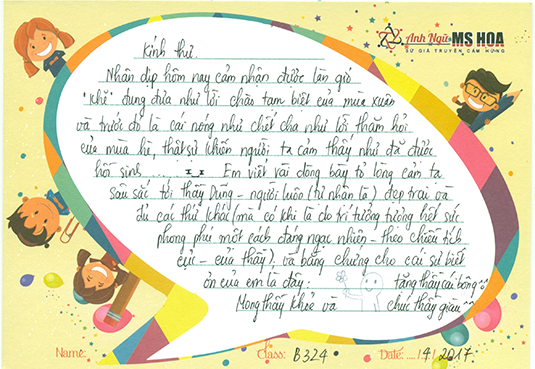 Anh Ngữ MS HOA
SỨ GIẢ TRUYỀN CẢM HỨNG
Kính thư.
Nhân dịp hôm nay cảm nhận được làn gió
"khẽ" dung đưa như lời chào tạm biệt của mùa xuân
và trước đó là cái nóng như chết cha như lời thăm hỏi
của mùa hè, thật sự khiến người ta cảm thấy như đã được
hồi sinh ...... Em viết vài dòng bày tỏ lòng cảm tạ
sâu sắc tới thầy Dũng - người luôn (tự nhận là) đẹp trai và
đủ các thứ khác (mà có khi là do trí tưởng tượng hết sức
phong phú một cách đáng ngạc nhiên - theo chiều tích
cực - của thầy) và bằng chứng cho cái sự biết
ơn của em là đây: tặng thầy cái bông ^^
Mong thầy khỏe và chúc thầy giàu ^^
Name: Class: B324 Date: ..../4/2017